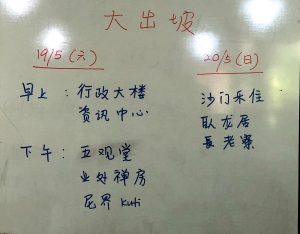 大出坡
19/5 (六)
20/5 (日)
早上 : 行政大楼
资讯中心
下午 : 五观堂
业处禅房
尼界 Kuti
沙门乐住
卧龙居
長老寮